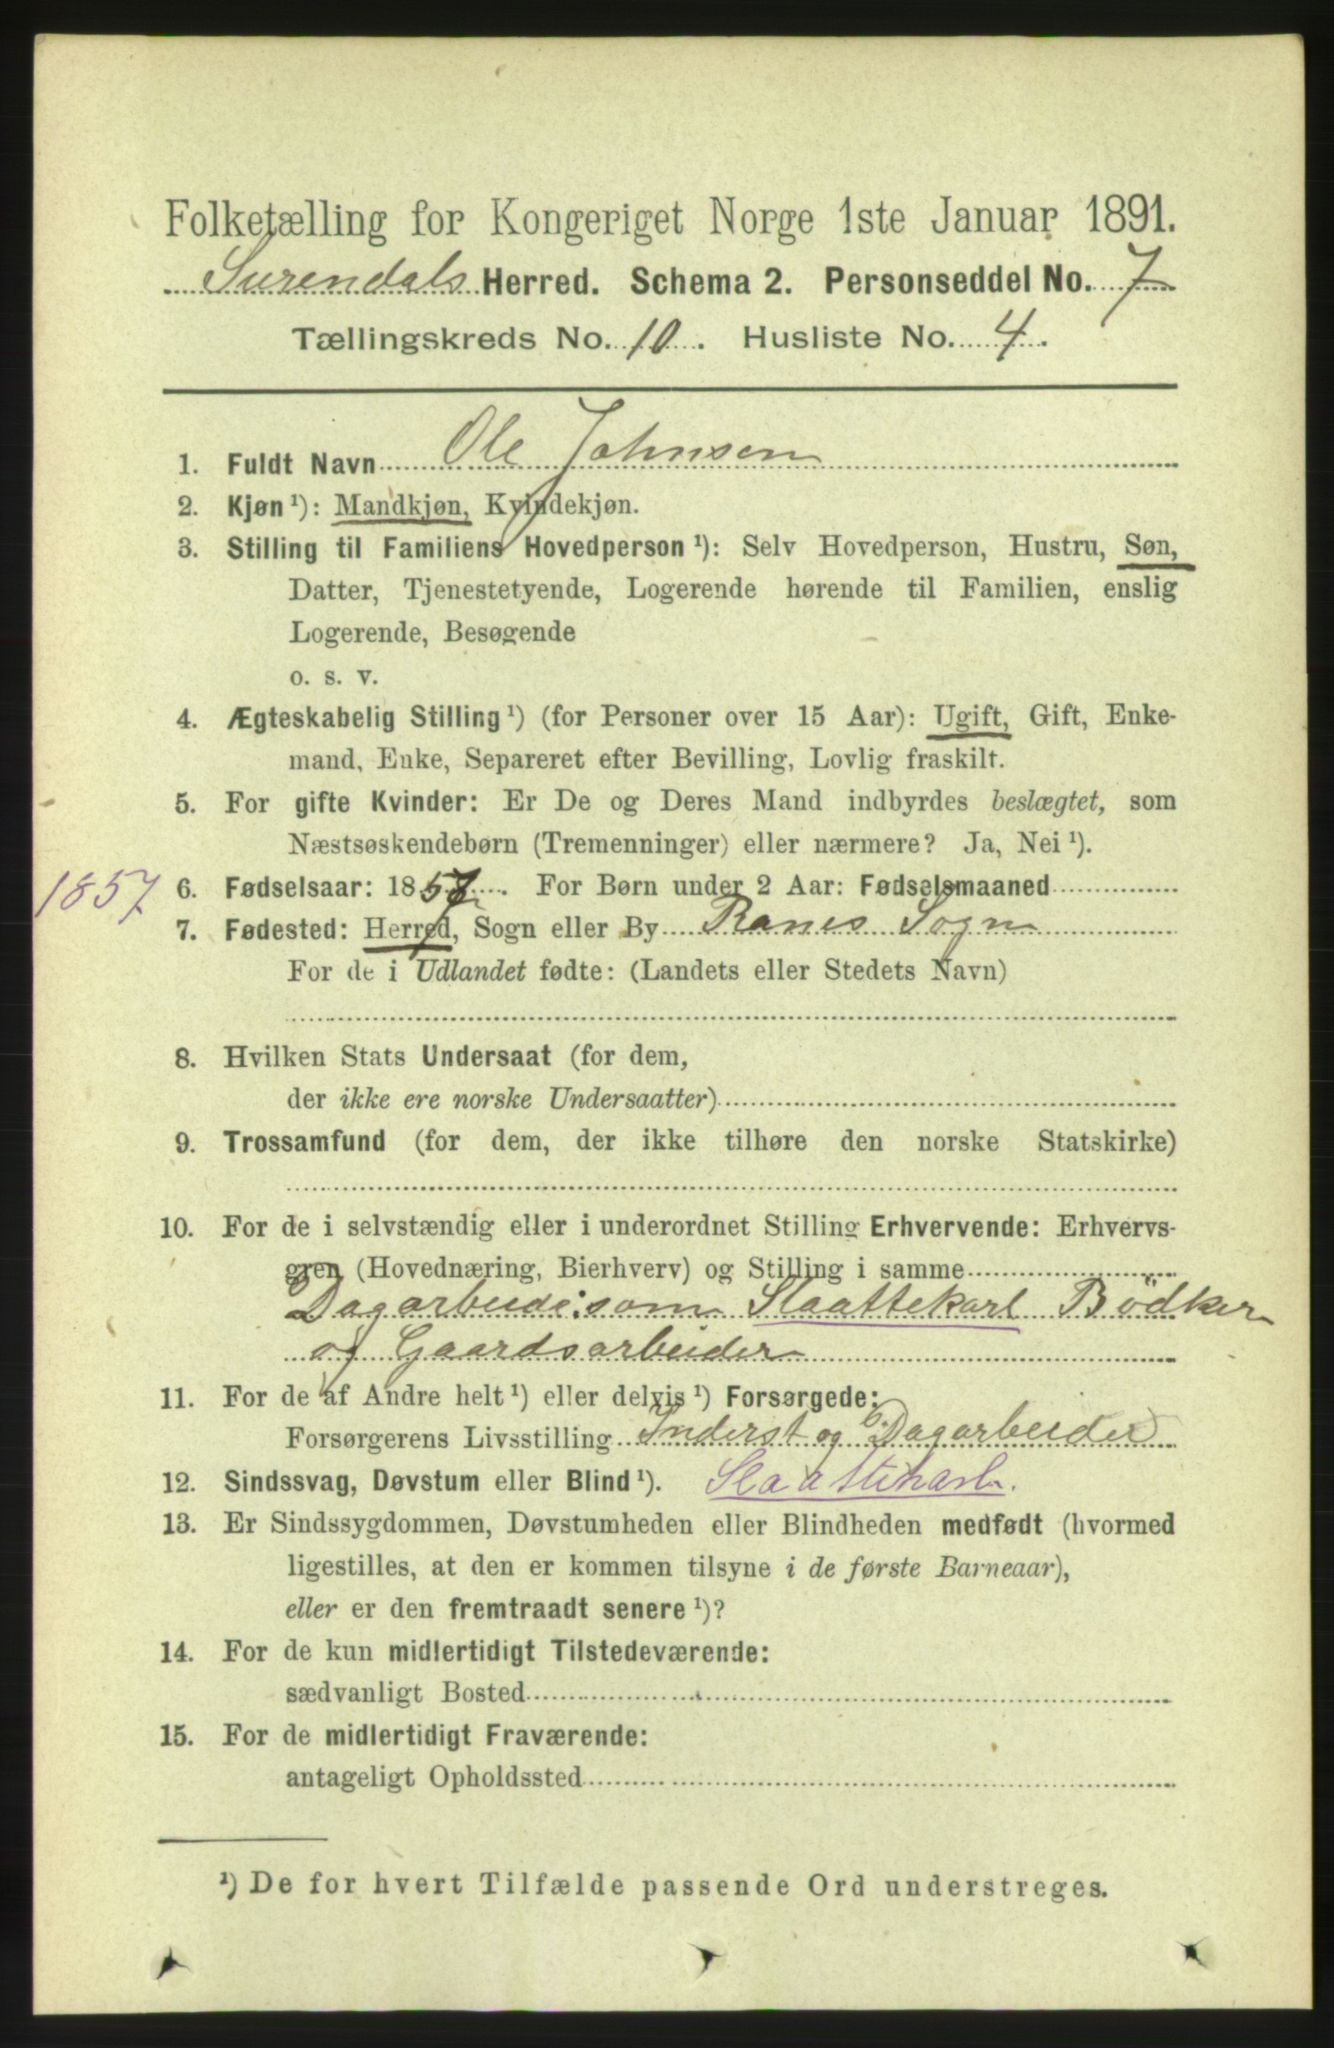 Folketælling for Kongeriget Norge 1ste Januar 1891.
Surendals Herred. Schema 2. Personseddel No. 7
Tællingskreds No. 10. Husliste No. 4.
1. Fuldt Navn Ole Johnsen
2. Kjøn ¹): Mandkjøn, Kvindekjøn.
3. Stilling til Familiens Hovedperson ¹): Selv Hovedperson, Hustru, Søn,
Datter, Tjenestetyende, Logerende hørende til Familien, enslig
Logerende, Besøgende
o. s. v.
4. Ægteskabelig Stilling ¹) (for Personer over 15 Aar): Ugift, Gift, Enke-
mand, Enke, Separeret efter Bevilling, Lovlig fraskilt.
5. For gifte Kvinder: Er De og Deres Mand indbyrdes beslægtet, som
Næstsøskendebørn (Tremenninger) eller nærmere? Ja, Nei ¹).
1857 6. Fødselsaar: 1857. For Børn under 2 Aar: Fødselsmaaned
7. Fødested: Herred, Sogn eller By Ranes Sogn
For de i Udlandet fødte: (Landets eller Stedets Navn)
8. Hvilken Stats Undersaat (for dem,
der ikke ere norske Undersaatter)
9. Trossamfund (for dem, der ikke tilhøre den norske Statskirke)
10. For de i selvstændig eller i underordnet Stilling Erhvervende: Erhvervs-
gren (Hovednæring, Bierhverv) og Stilling i samme
Dagarbeide: som Slaattekarl Bödker
og Gaardsarbeider
11. For de af Andre helt ¹) eller delvis ¹) Forsørgede:
Forsørgerens Livsstilling Inderst og Dagarbeider
12. Sindssvag, Døvstum eller Blind ¹). Slaattekarl.
13. Er Sindssygdommen, Døvstumheden eller Blindheden medfødt (hvormed
ligestilles, at den er kommen tilsyne i de første Barneaar),
eller er den fremtraadt senere ¹)?
14. For de kun midlertidigt Tilstedeværende:
sædvanligt Bosted
15. For de midlertidigt Fraværende:
antageligt Opholdssted
¹) De for hvert Tilfælde passende Ord understreges.